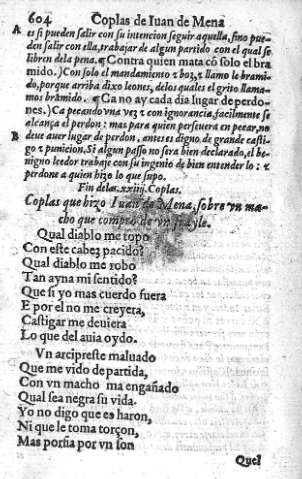 604 Coplas de Iuan de Mena
A es si pueden salir con su intencion seguir aquella, sino pue-
den salir con ella, trabajar de algun partido con el qual se
libren dela pena. ¶ Contra quien mata cõ solo el bra
mido.) Con solo el mandamiento z boz, z llamo le brami-
do, porque arriba dixo leones, delos quales el grito llama-
mos bramido. ¶ Ca no ay cada dia lugar de perdo-
nes.) Ca pecando vna vez z con ignorancia, facilmente se
alcança el perdon: mas para quien perseuera en pecar, no
B deue auer lugar de perdon, antes es digno de grande casti-
go z punicion. Si algun passo no sera bien declarado, el be-
nigno leedor trabaje con su ingenio de bien entender lo: z
perdone a quien hizo lo que supo.
Fin delas .xxiiij. Coplas.
Coplas que hizo Iuan de Mena, sobre vn ma-
cho que compro de vn frayle.
Qual diablo me topo
Con este cabez pacido?
Qual diablo me robo
Tan ayna mi sentido?
Que si yo mas cuerdo fuera
E por el no me creyera,
Castigar me deuiera
Lo que del auia oydo.
Vn arcipreste maluado
Que me vido de partida,
Con vn macho ma engañado
Qual sea negra su vida.
Yo no digo que es haron,
Ni que le toma torçon,
Mas porfia por vn son
Quel